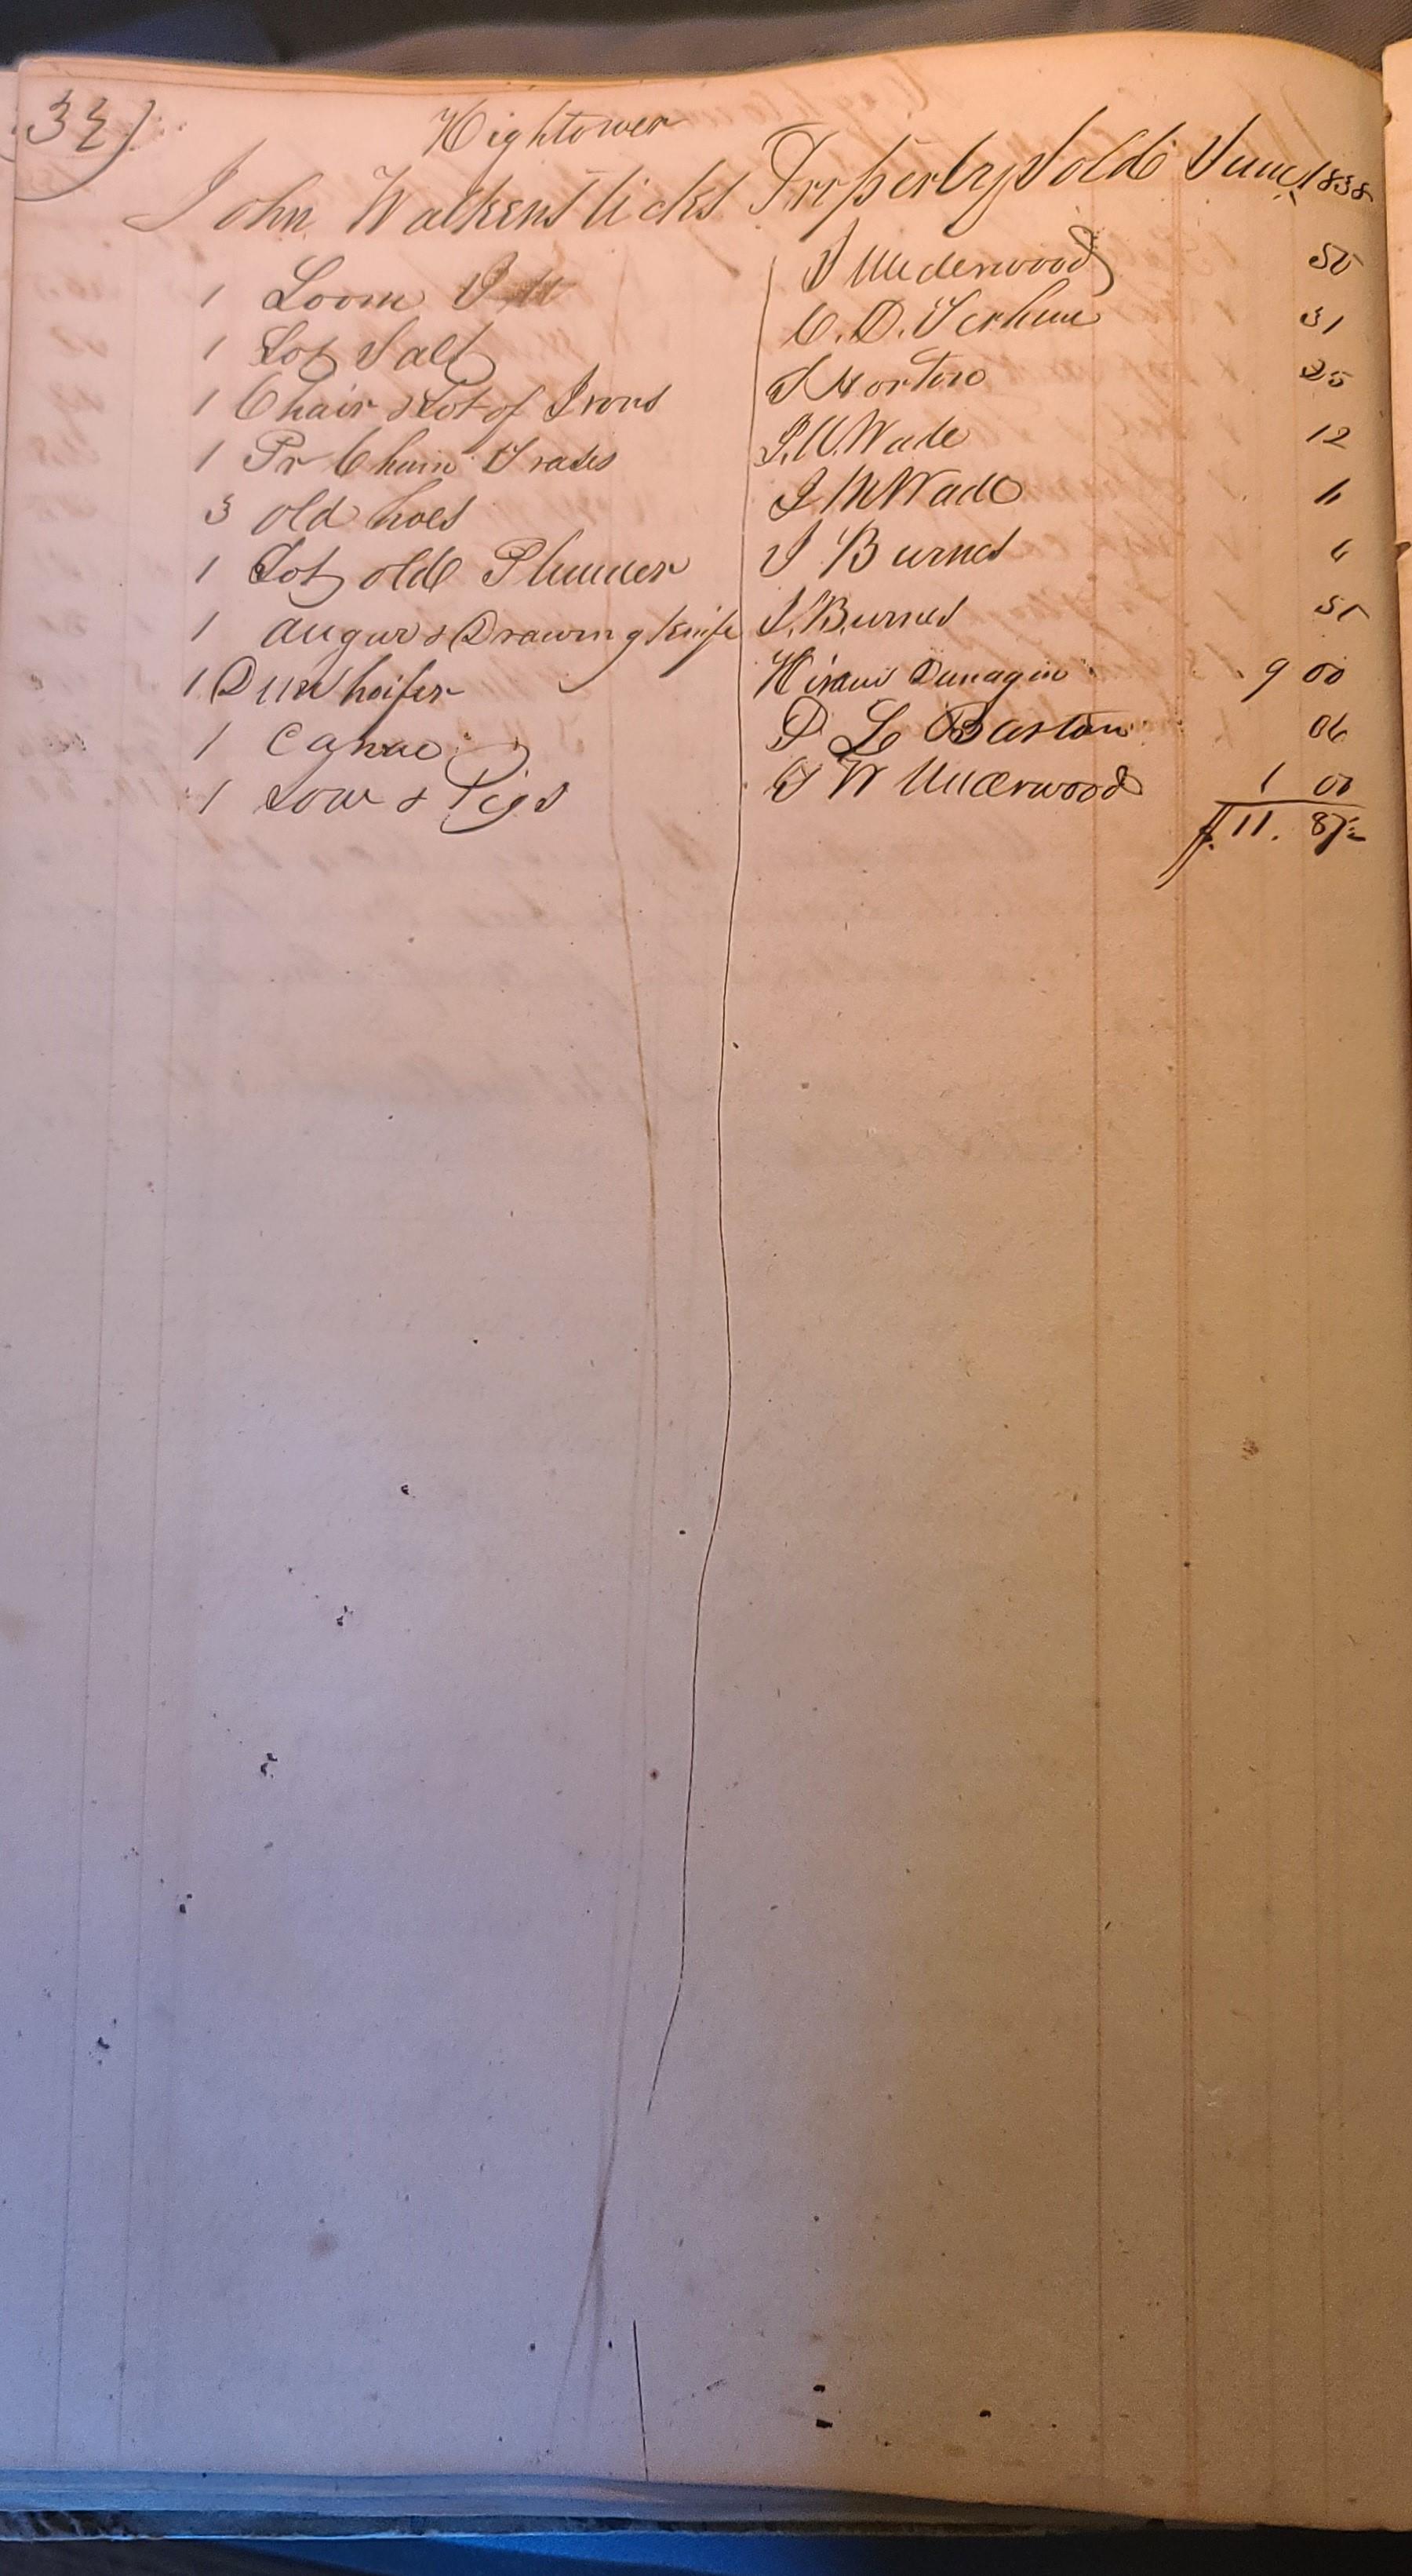 32)
Hightower
John Walkensticks Property Sold June 1838
1 Loom J Underwood 50
1 Lot Salt C. D. Terhune 31
1 Chair & Lot of Irons J Horton 25
1 Pr Chain Traces J. M. Wade 12
3 old hoes J M Wade
1 Lot old Plunder J Burnes 6
1 augur & Drawing Knife J. Burnes 51
1 Dun heifer Hiram Dunagin 9 00
1 Canoe D L Barton 06
1 Sow & Pigs J W Underwood 1 00
$11. 87½